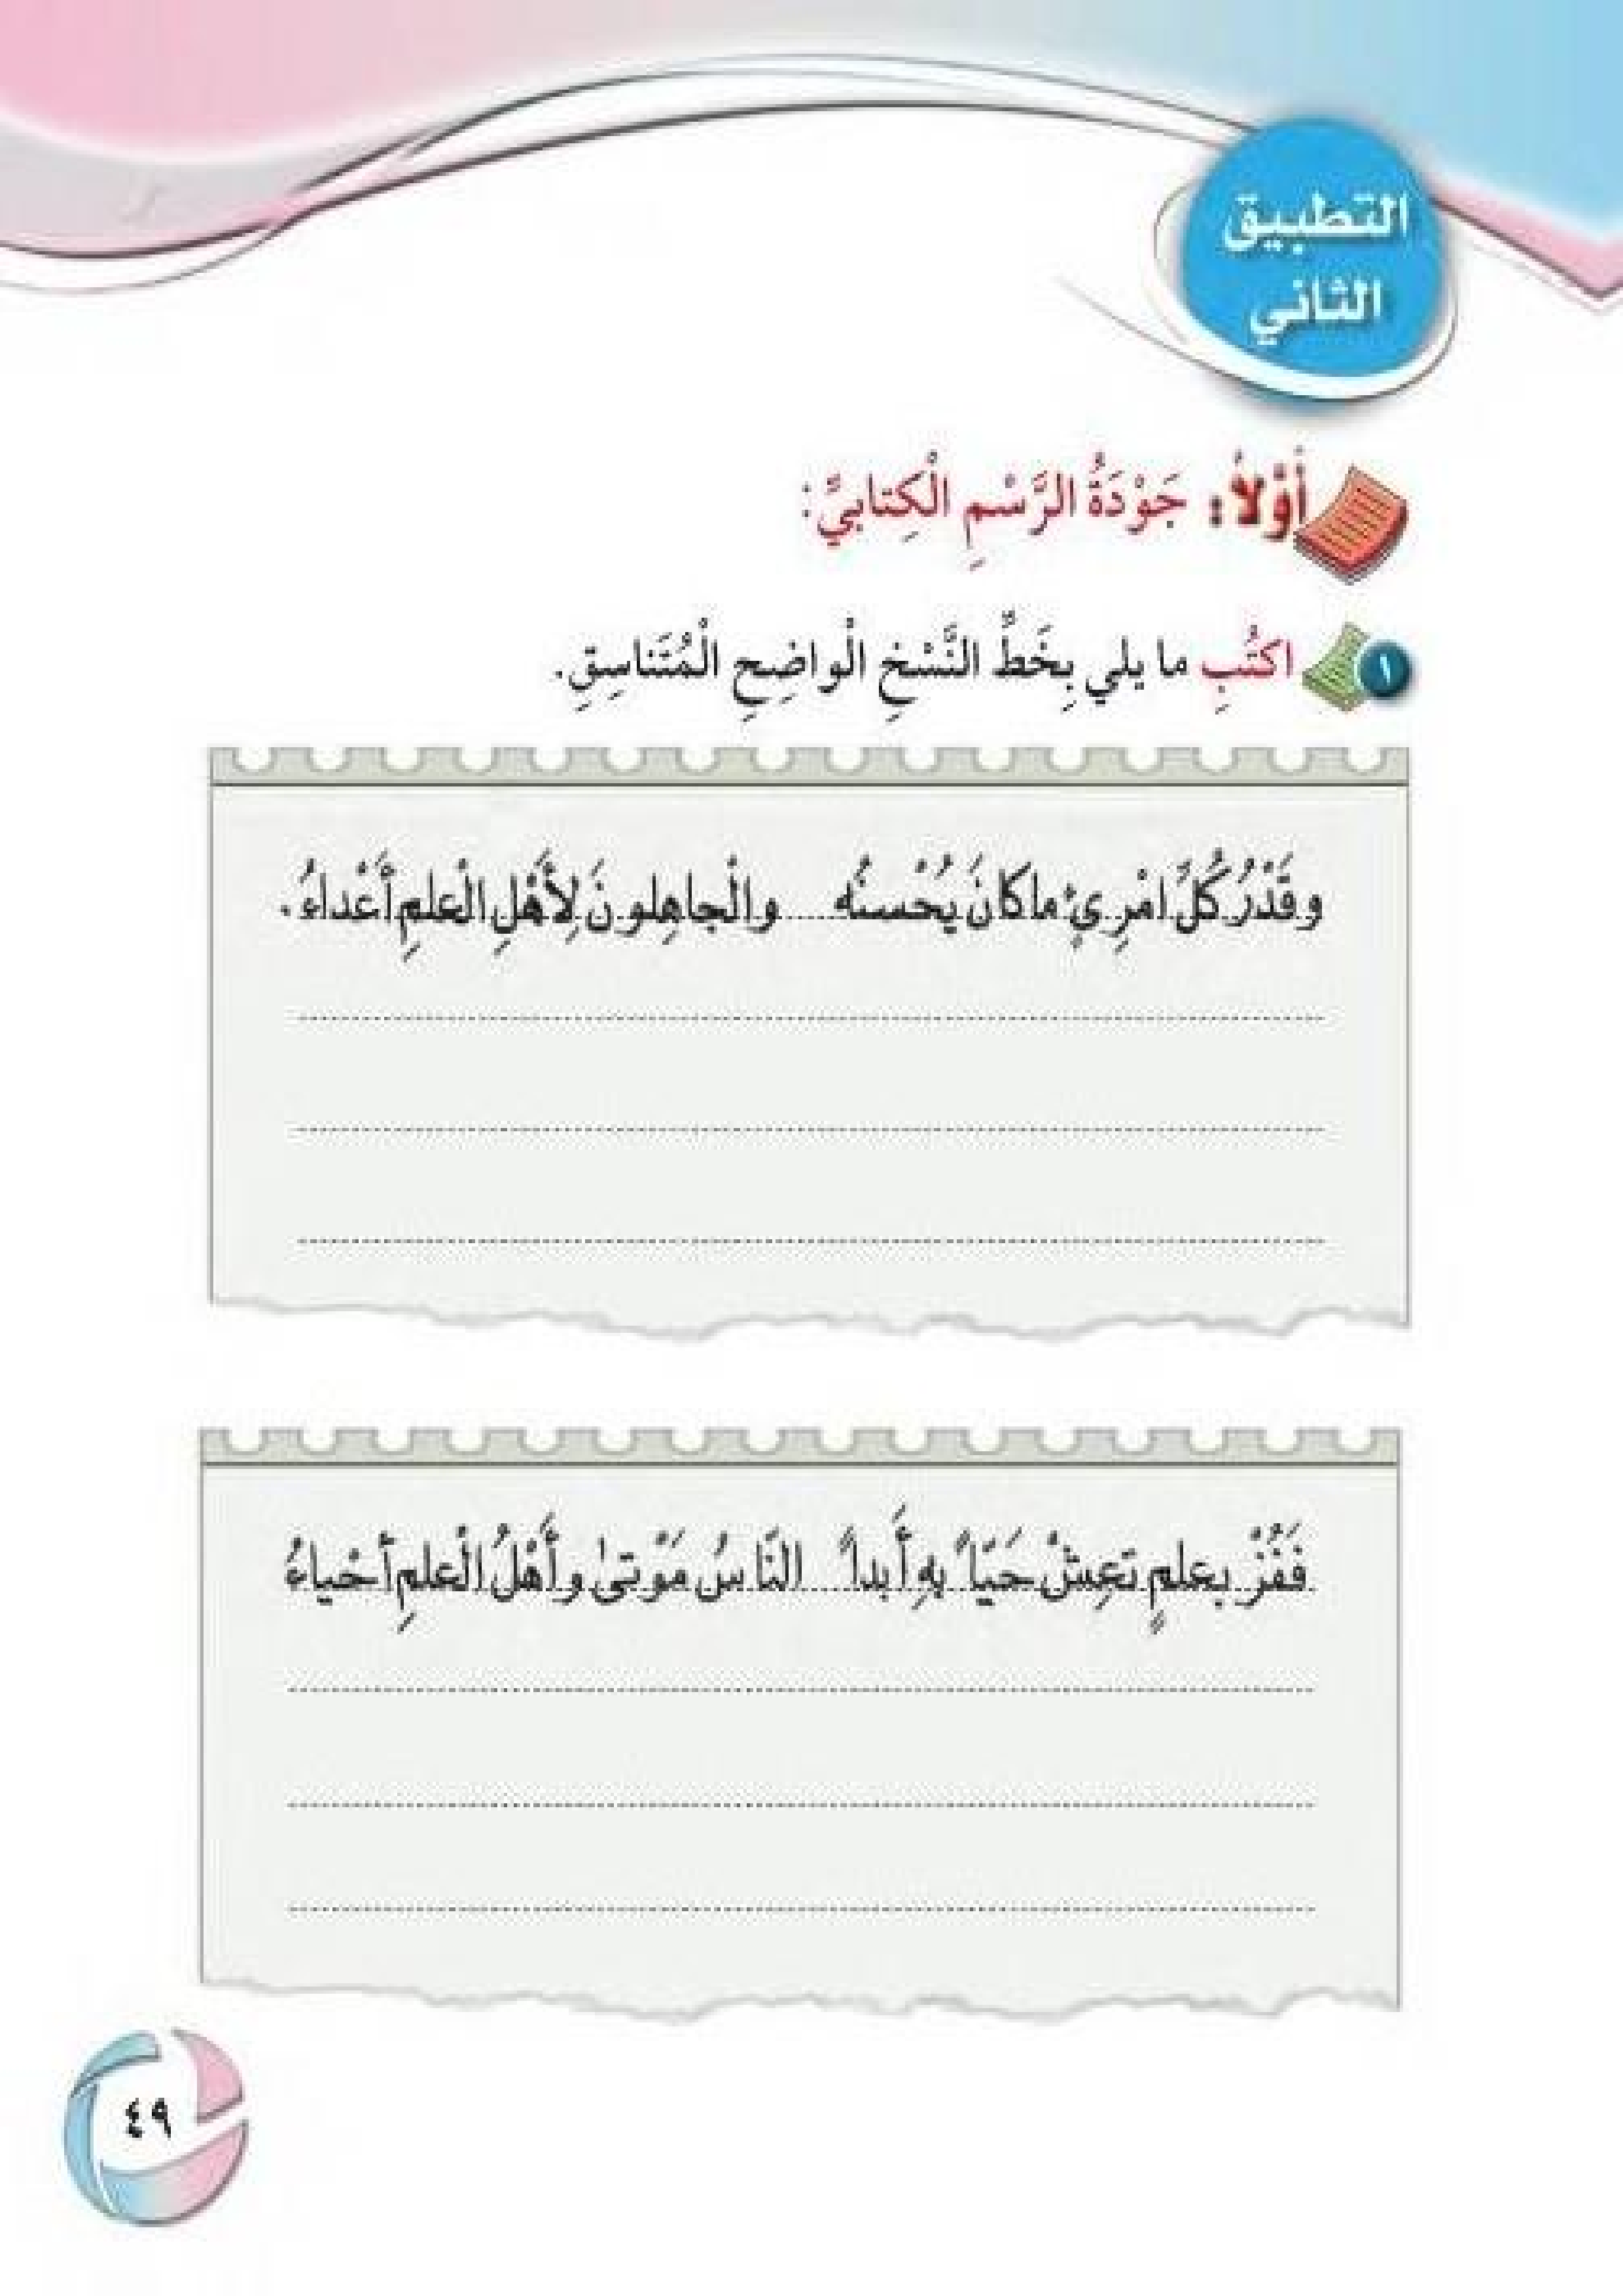 التطبيق
الثاني
أَوَّلاً: جَوْدَةُ الرَّسْمِ الْكِتابيِّ:
١ اكتُبِ ما يلي بِخَطِّ النَّسْخِ الْواضِحِ الْمُتَناسِقِ.
وقَدْرُ كُلِّ امْرِئٍ ما كانَ يُحْسنُه والْجاهِلونَ لِأَهْلِ الْعلمِ أَعْداءُ.
فَفُزْ بعلمٍ تعِشْ حَيّاً بهِ أَبداً النّاسُ مَوْتىٰ وأَهْلُ الْعلمِ أحْياءُ
٤٩